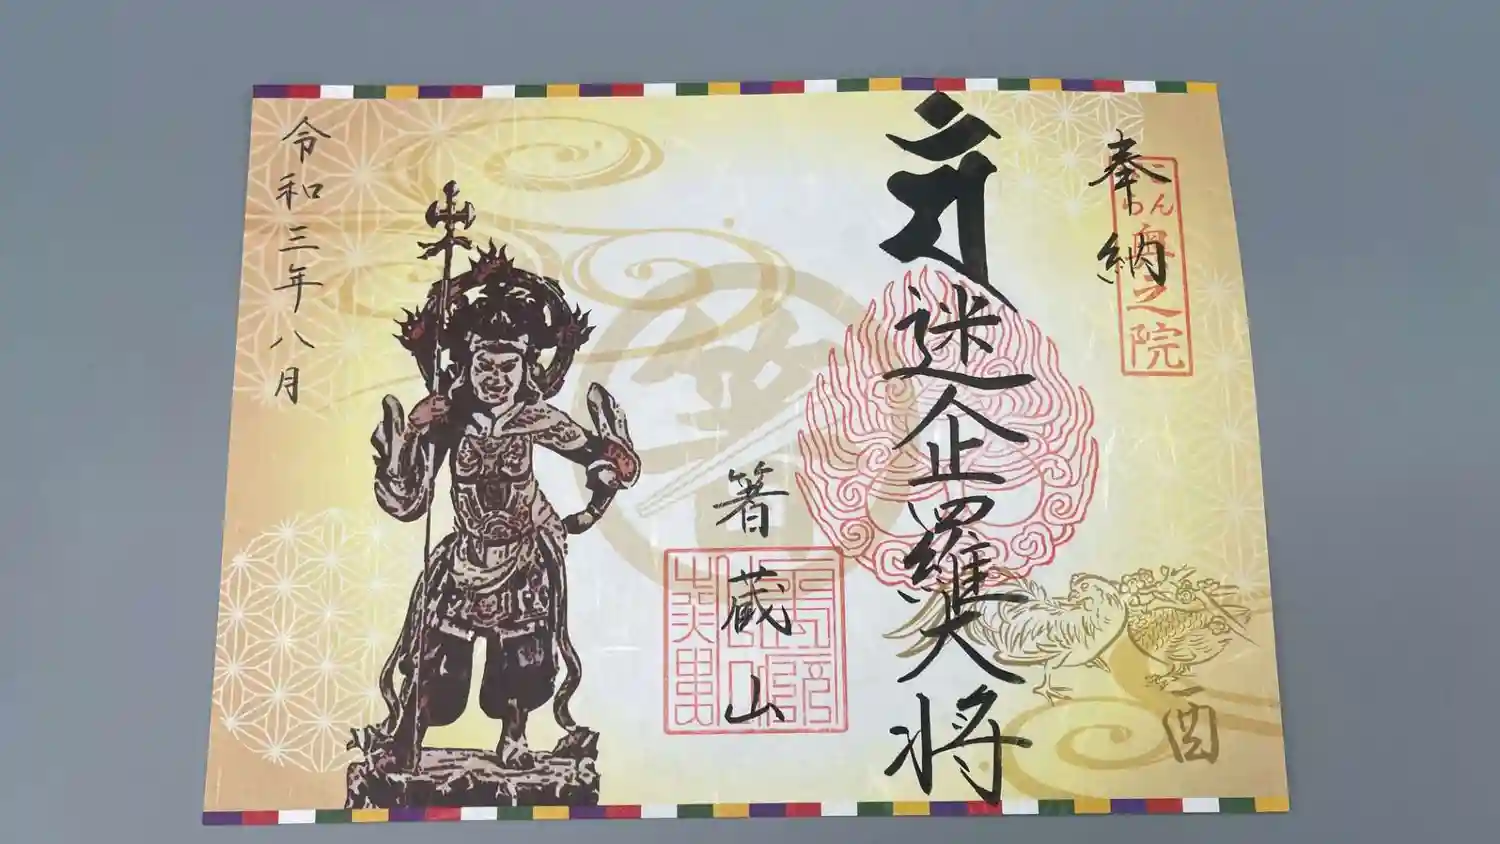 奉納
こんぴら奥之院
迷企羅大将
箸蔵山
令和三年八月
酉